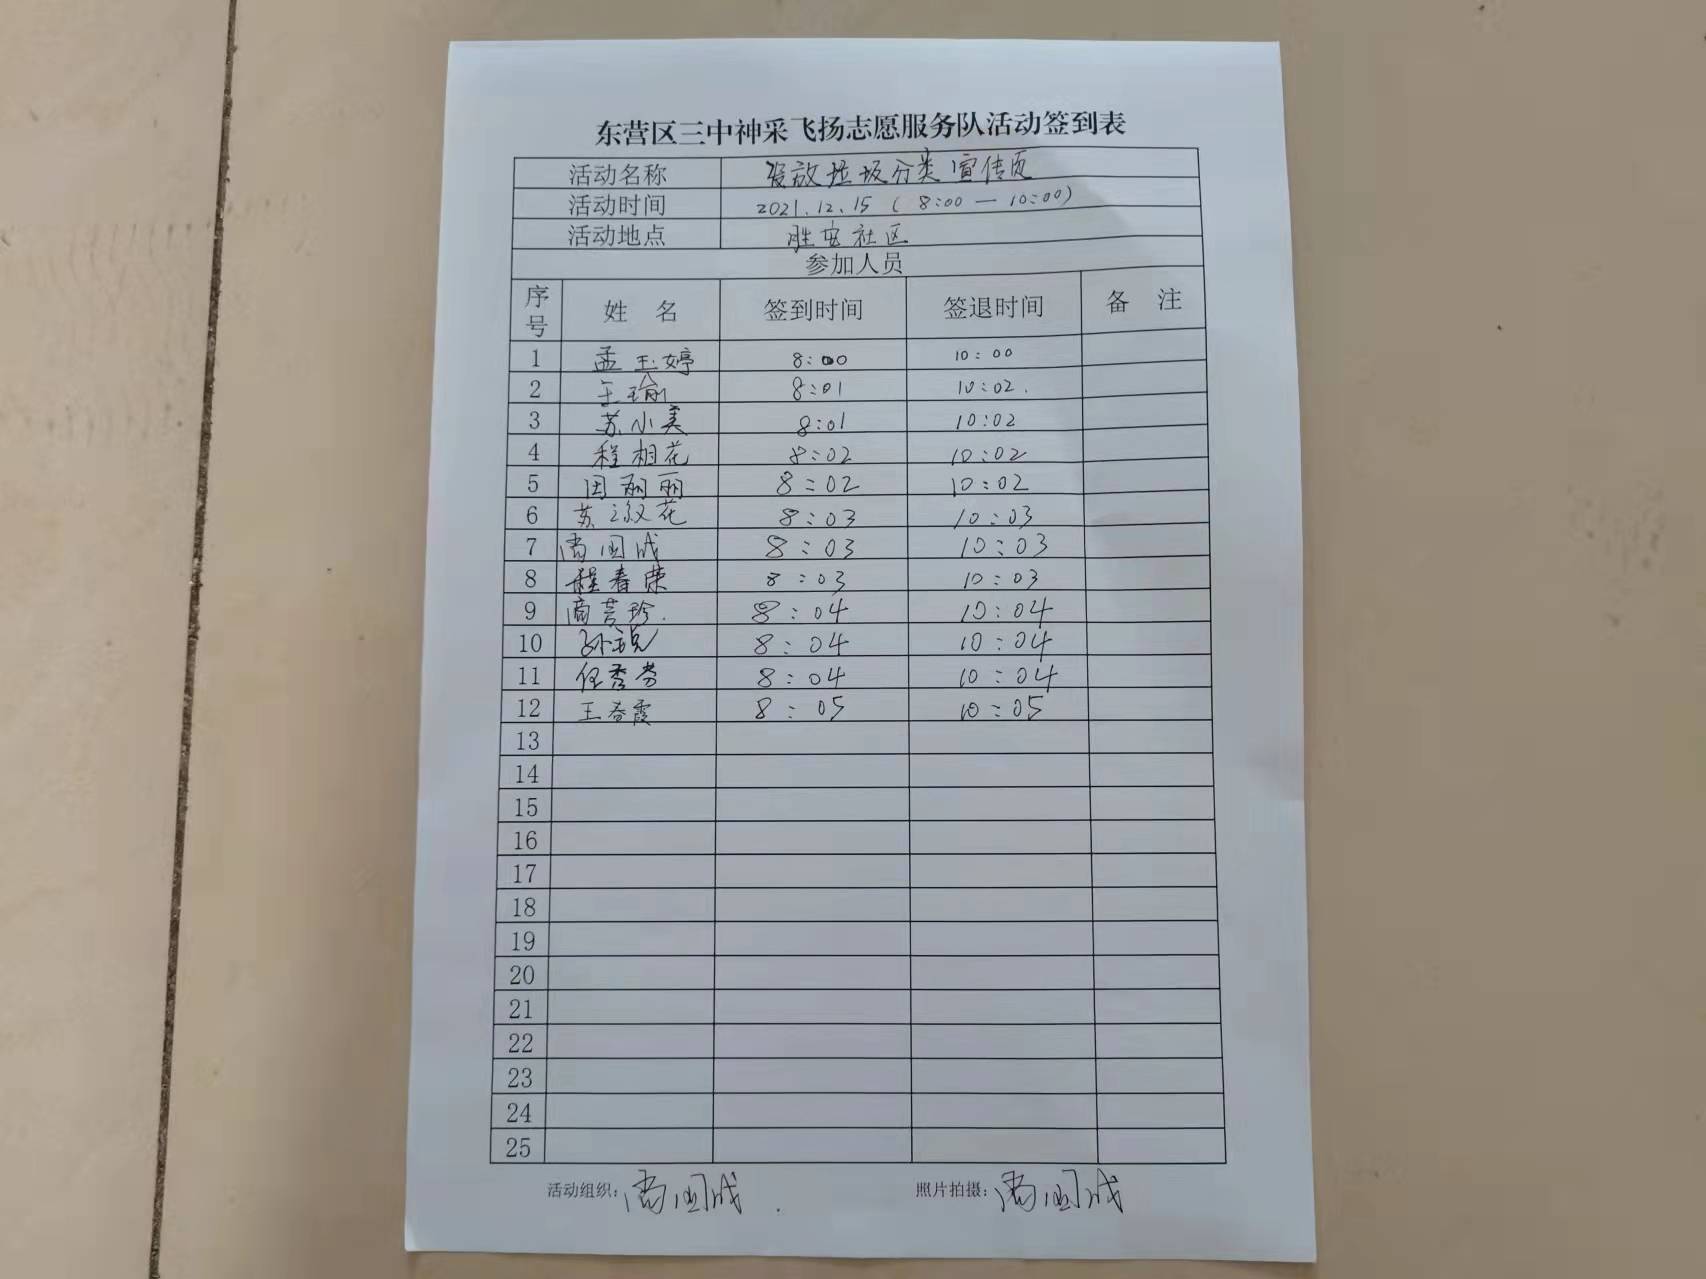 东营区三中神采飞扬志愿服务队活动签到表
活动名称 发放垃圾分类宣传页
活动时间 2021.12.15 (8:00—10:00)
活动地点 胜安社区
参加人员
序号 姓 名 签到时间 签退时间 备 注
1 孟玉婷 8:00 10:00
2 王瑜 8:01 10:02.
3 苏小美 8:01 10:02
4 程相花 8:02 10:02
5 田丽丽 8:02 10:02
6 苏淑花 8:03 10:03
7 商国成 8:03 10:03
8 程春荣 8:03 10:03
9 商 珍. 8:04 10:04
10 孙 8:04 10:04
11 任秀芬 8:04 10:04
12 王春霞 8:05 10:05
13
14
15
16
17
18
19
20
21
22
23
24
25
活动组织: 商国成. 照片拍摄: 商国成